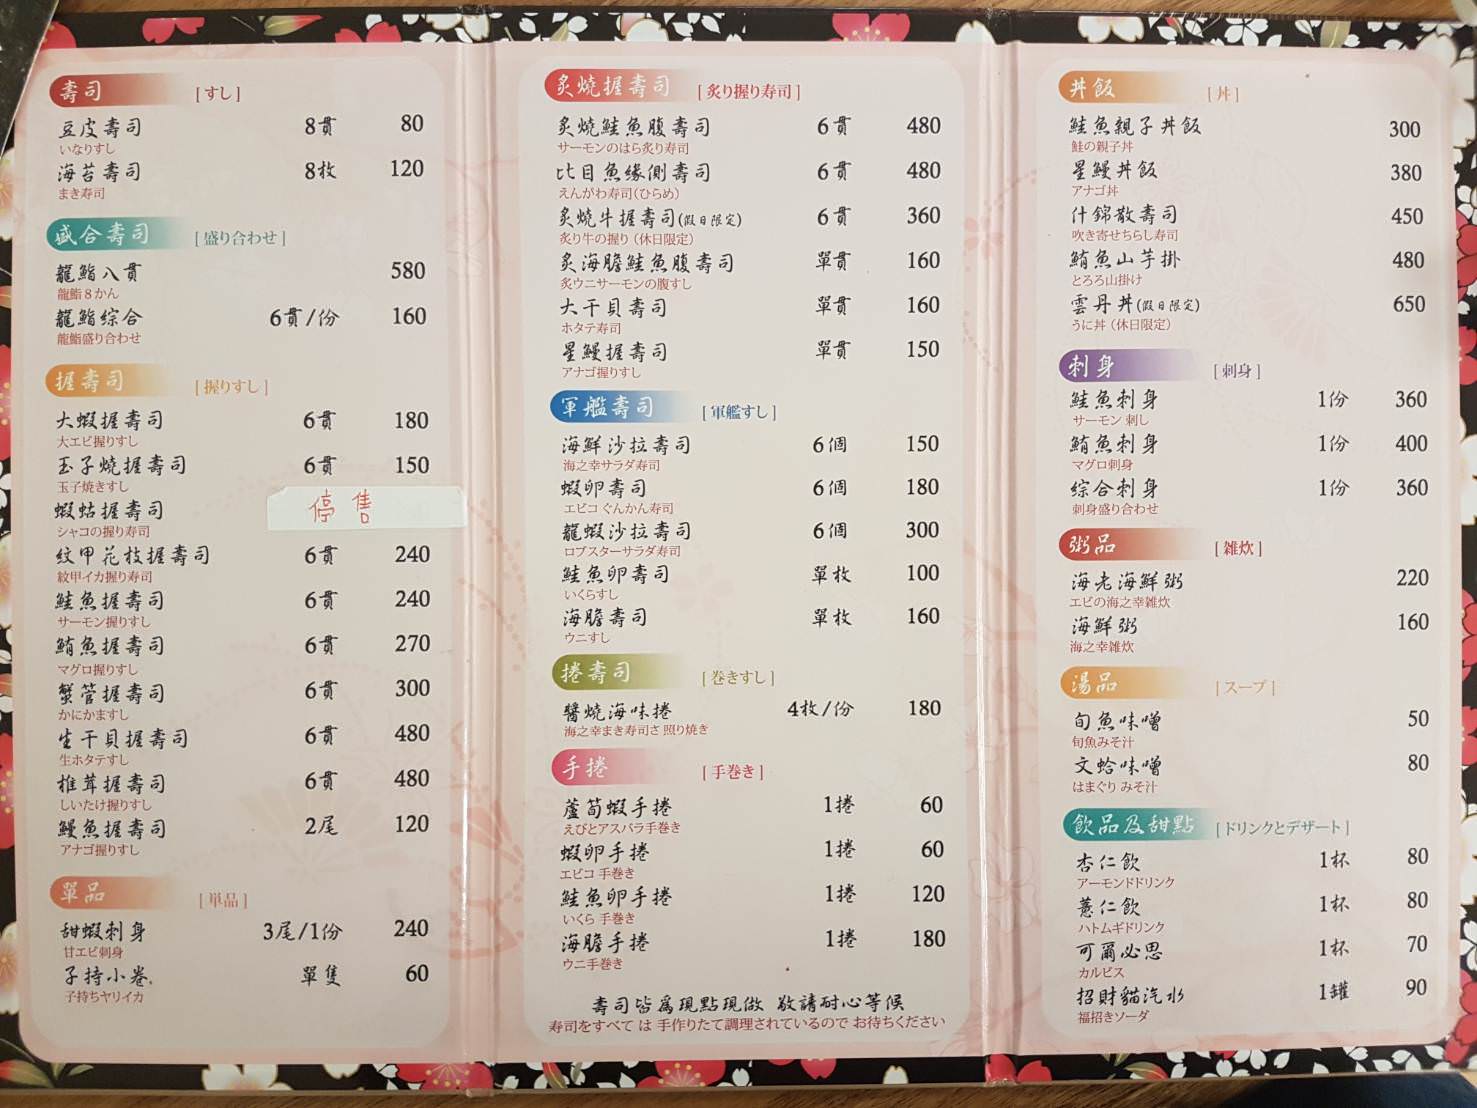 壽司 [すし]
豆皮壽司 8貫 80
いなりすし
海苔壽司 8枚 120
まき寿司
盛合壽司 [盛り合わせ]
龍鮨八貫 580
龍鮨8かん
龍鮨綜合 6貫/份 160
龍鮨盛り合わせ
握壽司 [握りすし]
大蝦握壽司 6貫 180
大エビ握りすし
玉子燒握壽司 6貫 150
玉子焼きすし
蝦蛄握壽司 停售
シャコの握り寿司
紋甲花枝握壽司 6貫 240
紋甲イカ握り寿司
鮭魚握壽司 6貫 240
サーモン握りすし
鮪魚握壽司 6貫 270
マグロ握りすし
蟹管握壽司 6貫 300
かにかますし
生干貝握壽司 6貫 480
生ホタテすし
椎茸握壽司 6貫 480
しいたけ握りすし
鰻魚握壽司 2尾 120
アナゴ握りすし
單品 [単品]
甜蝦刺身 3尾/1份 240
甘エビ刺身
子持小卷 單隻 60
子持ちヤリイカ
炙燒握壽司 [炙り握り寿司]
炙燒鮭魚腹壽司 6貫 480
サーモンのはら炙り寿司
比目魚緣側壽司 6貫 480
えんがわ寿司(ひらめ)
炙燒牛握壽司(假日限定) 6貫 360
炙り牛の握り (休日限定)
炙海膽鮭魚腹壽司 單貫 160
炙ウニサーモンの腹すし
大干貝壽司 單貫 160
ホタテ寿司
星鰻握壽司 單貫 150
アナゴ握りすし
軍艦壽司 [軍艦すし]
海鮮沙拉壽司 6個 150
海之幸サラダ寿司
蝦卵壽司 6個 180
エビコ ぐんかん寿司
龍蝦沙拉壽司 6個 300
ロブスターサラダ寿司
鮭魚卵壽司 單枚 100
いくらすし
海膽壽司 單枚 160
ウニすし
捲壽司 [巻きすし]
醬燒海味捲 4枚/份 180
海之幸まき寿司さ 照り焼き
手捲 [手巻き]
蘆筍蝦手捲 1捲 60
えびとアスパラ手巻き
蝦卵手捲 1捲 60
エビコ 手巻き
鮭魚卵手捲 1捲 120
いくら 手巻き
海膽手捲 1捲 180
ウニ手巻き
壽司皆為現點現做 敬請耐心等候
寿司をすべて は 手作りたて調理されているので お待ちください
丼飯 [丼]
鮭魚親子丼飯 300
鮭の親子丼
星鰻丼飯 380
アナゴ丼
什錦散壽司 450
吹き寄せちらし寿司
鮪魚山芋掛 480
とろろ山掛け
雲丹丼(假日限定) 650
うに丼 (休日限定)
刺身 [刺身]
鮭魚刺身 1份 360
サーモン 刺し
鮪魚刺身 1份 400
マグロ刺身
綜合刺身 1份 360
刺身盛り合わせ
粥品 [雑炊]
海老海鮮粥 220
エビの海之幸雑炊
海鮮粥 160
海之幸雑炊
湯品 [スープ]
旬魚味噌 50
旬魚みそ汁
文蛤味噌 80
はまぐり みそ汁
飲品及甜點 [ドリンクとデザート]
杏仁飲 1杯 80
アーモンドドリンク
薏仁飲 1杯 80
ハトムギドリンク
可爾必思 1杯 70
カルピス
招財貓汽水 1罐 90
福招きソーダ